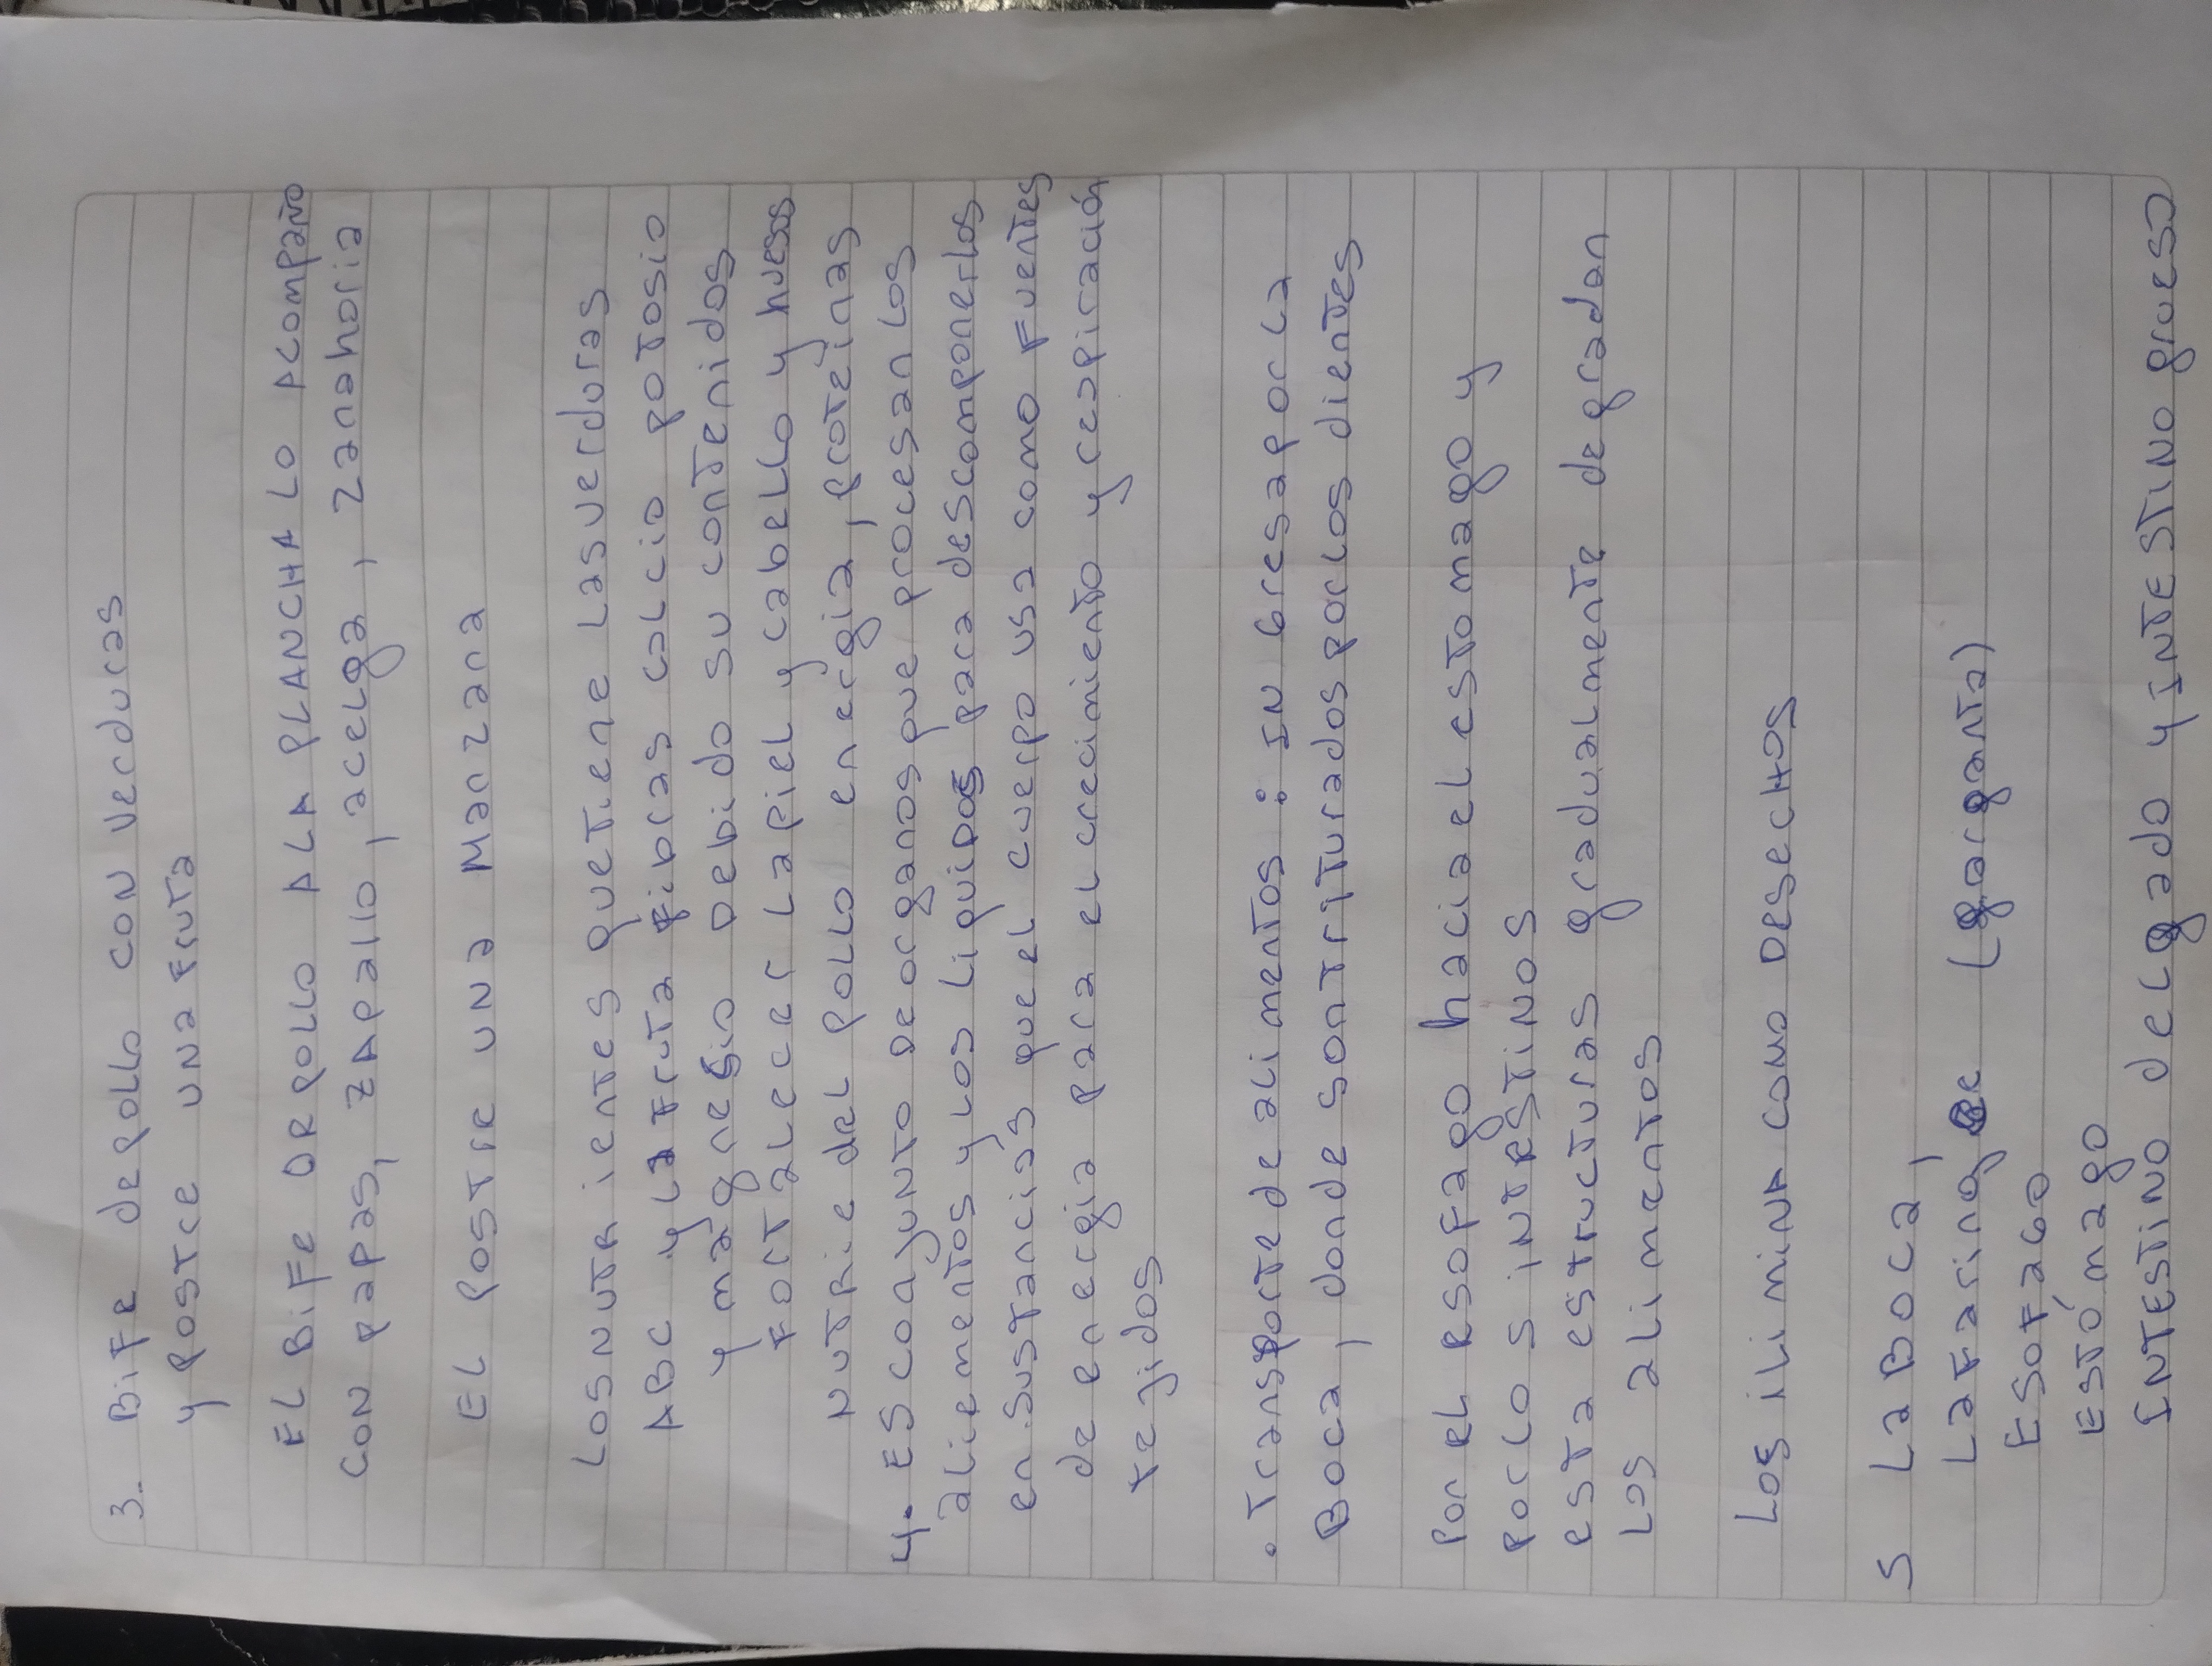 3. Bife de pollo con verduras
y postre una fruta
EL BIFE DE POLLO A LA PLANCHA LO ACOMPAÑO
CON papas, ZAPALLO, acelga, Zanahoria
EL POSTRE UNA Manzana
Los nutrientes que tiene las verduras
ABC y la fruta fibras calcio potosio
y magnesio Debido su contenidos
Fortalecer la piel y cabello y huesos
Nutrie del pollo energia, proteinas
4. ES conjunto de organos que procesan los
aliementos y los liquidos para descomponerlos
en sustancias que el cuerpo usa como fuentes
de energia para el crecimiento y respiración
tejidos
. Transporte de alimentos : INGresa por la
Boca, donde son triturados por los dientes
Por el esofago hacia el estomago y
por los intestinos
esta estructuras gradualmente degradan
Los alimentos
Los ilimina como desechos
5 La Boca,
La faringe (garganta)
Esofago
Estómago
Intestino delgado y intestino grueso